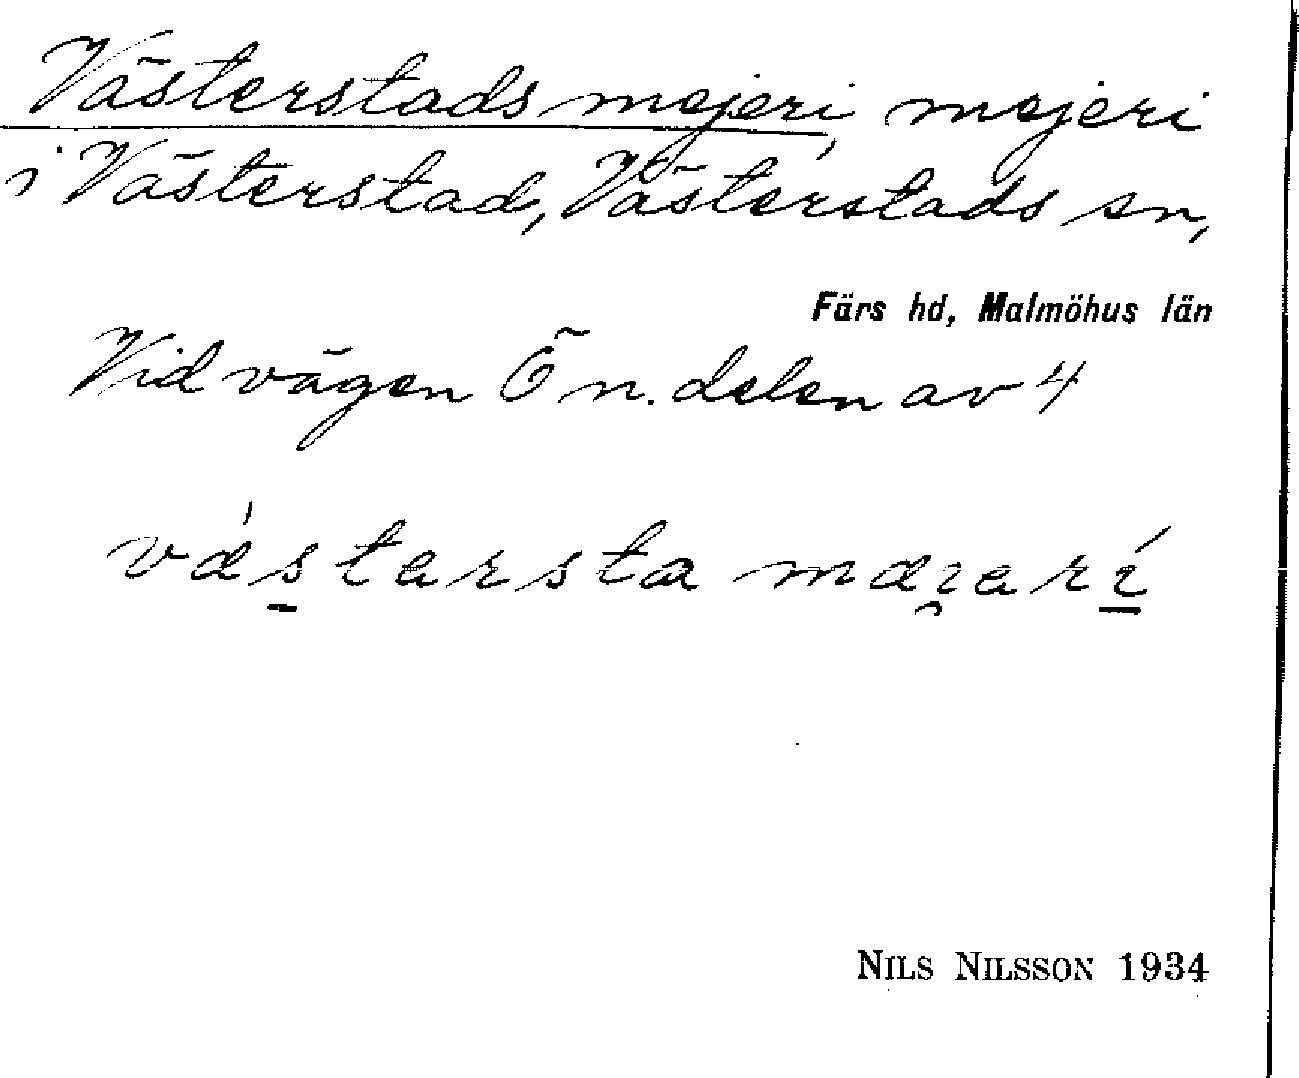 Västerstads mejeri, mejeri
i Västerstad, Västerstads sn,
Färs hd, Malmöhus län
Vid vägen Ö n. delen av 4
västarsta mæi̯arí
NILS NILSSON 1934